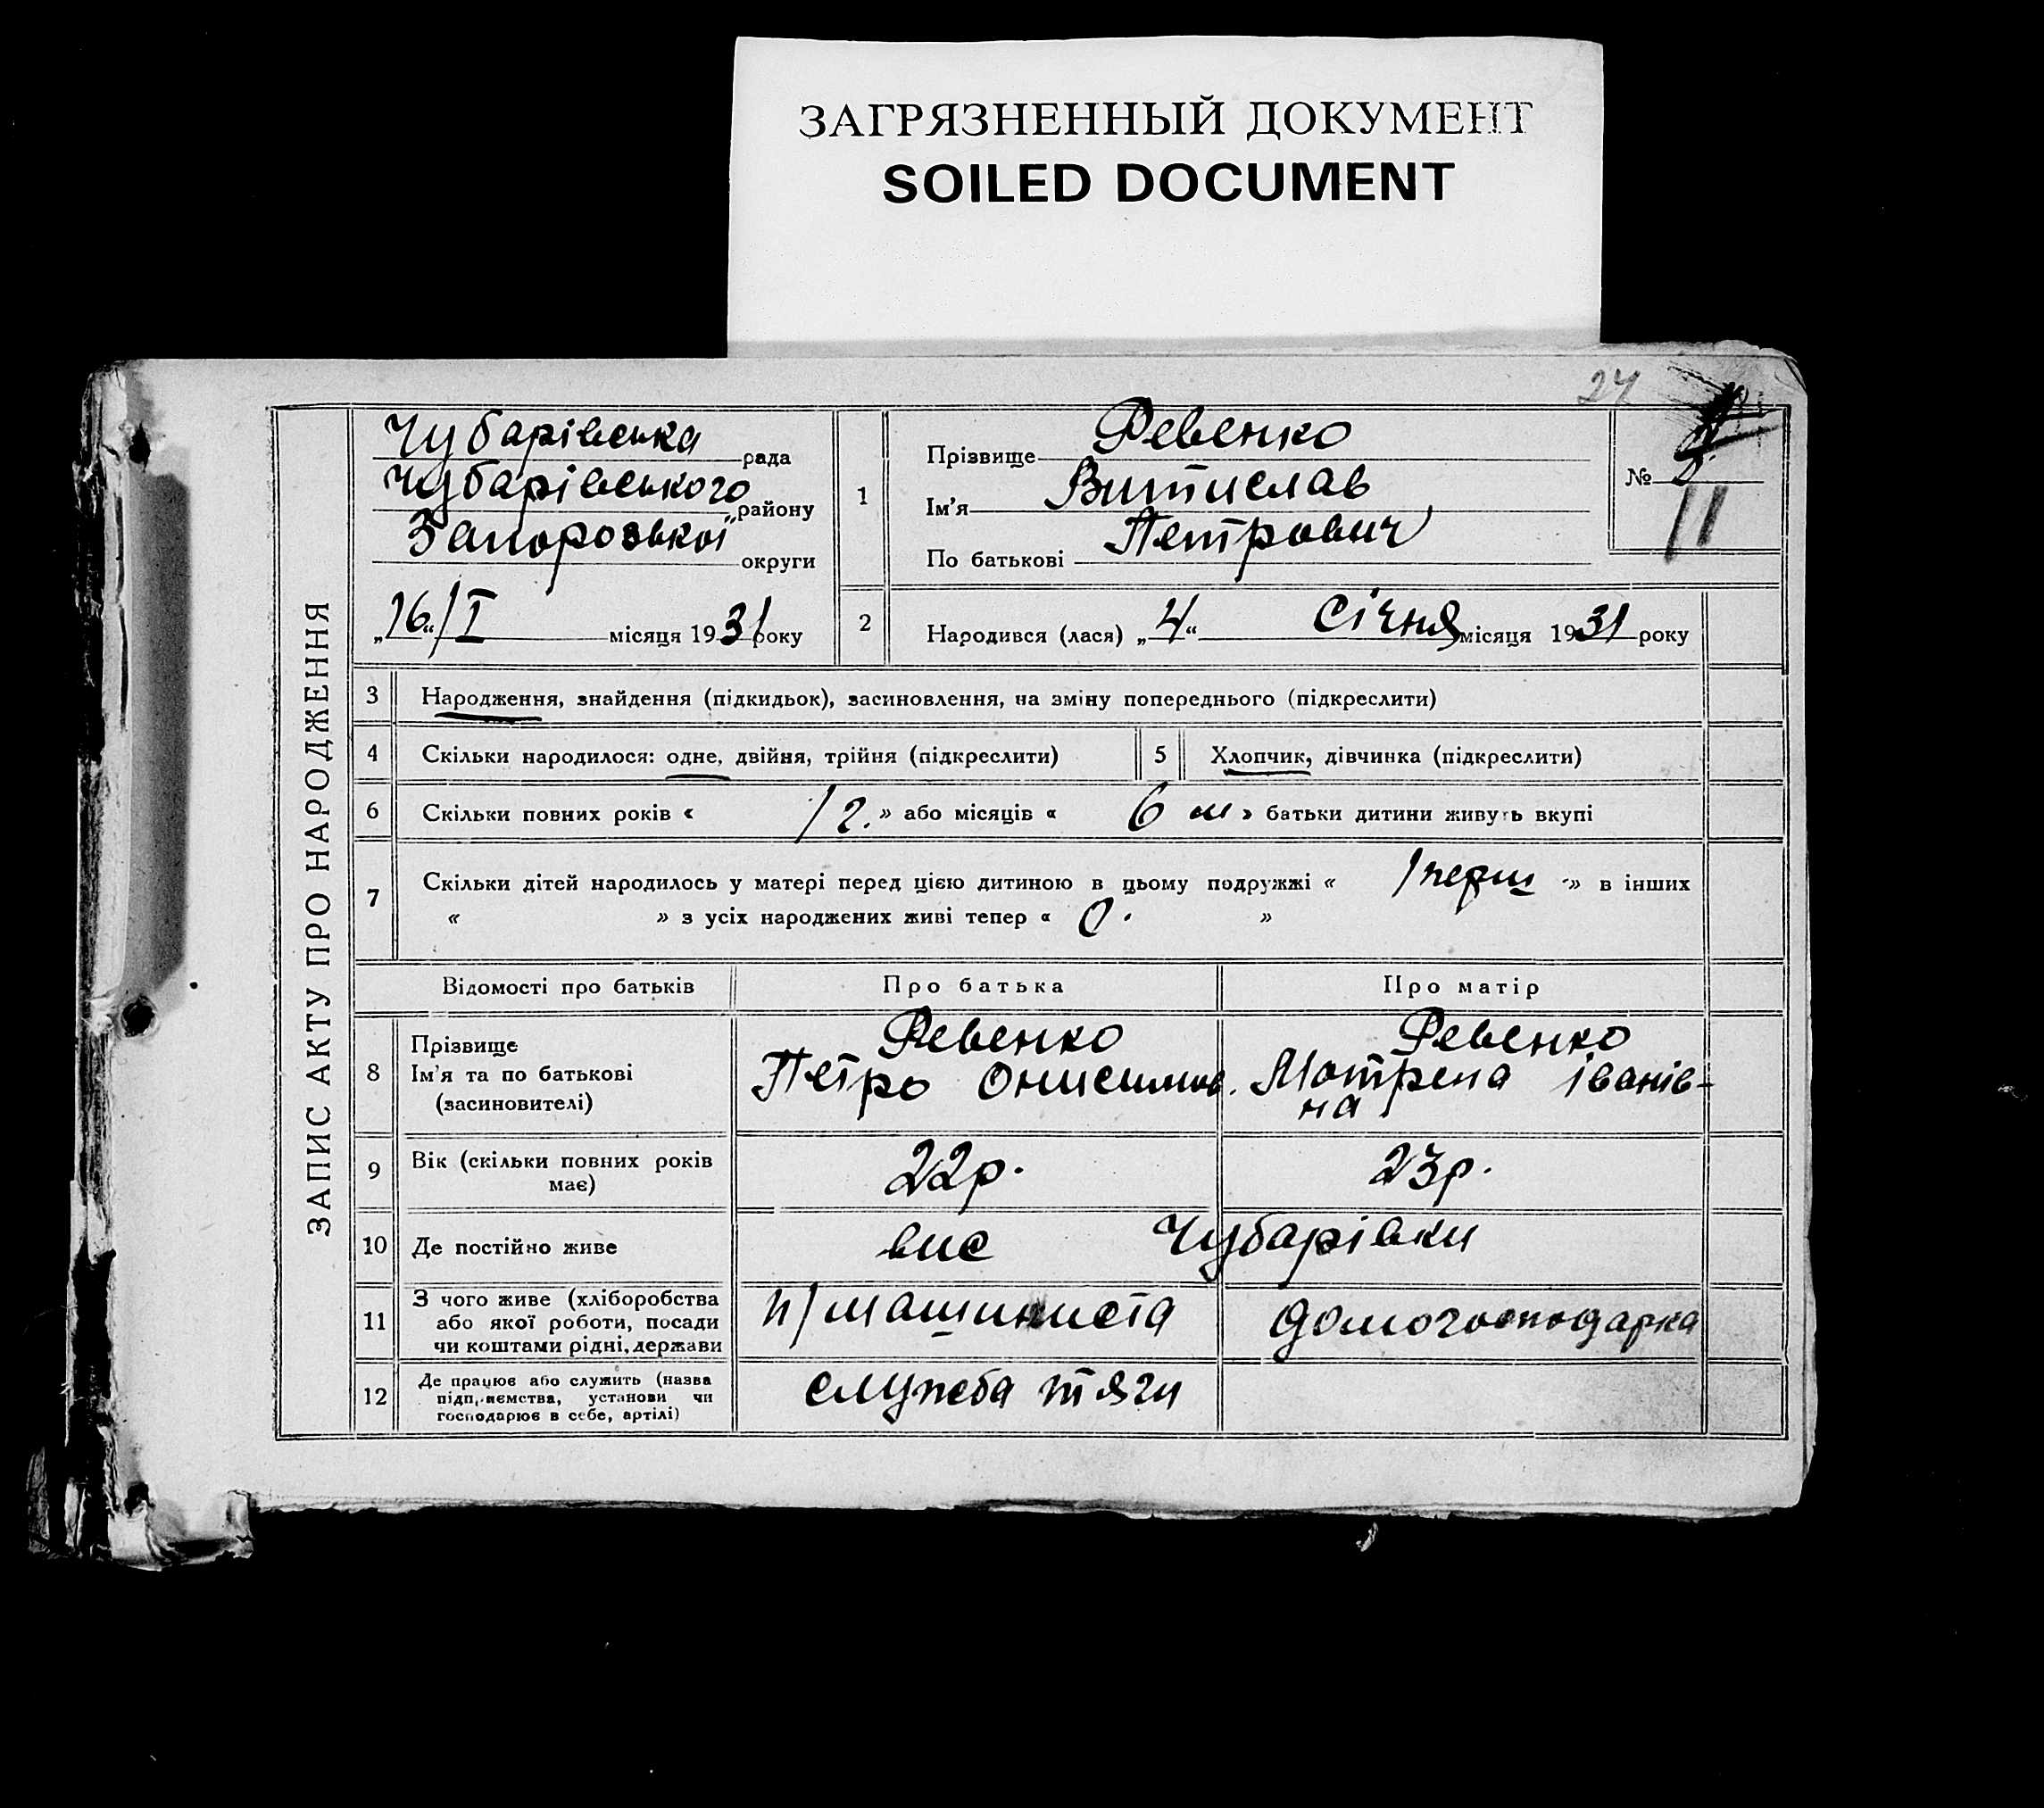 ЗАГРЯЗНЕННЫЙ ДОКУМЕНТ
SOILED DOCUMENT
27
ЗАПИС АКТУ ПРО НАРОДЖЕННЯ
Чубарівська рада
Чубарівського району
Запорозької округи
„16“/I місяця 1931 року
1
Прізвище Ревенко
Ім'я Витислав
По батькові Петрович
№
11
2
Народився (лася) „4“ Січня місяця 1931 року
3 Народження, знайдення (підкидьок), засиновлення, на зміну попереднього (підкреслити)
4 Скільки народилося: одне, двійня, трійня (підкреслити)
5 Хлопчик, дівчинка (підкреслити)
6 Скільки повних років « » або місяців « 6 м » батьки дитини живуть вкупі
7 Скільки дітей народилось у матері перед цією дитиною в цьому подружжі « 1 перш » в інших
« » з усіх народжених живі тепер « 0. »
Відомості про батьків Про батька Про матір
8
Прізвище Ревенко Ревенко
Ім'я та по батькові Петро Онисимов. Мотрена Іванів-
(засиновителі) на
9 Вік (скільки повних років 22р. 23р.
має)
10 Де постійно живе вис Чубарівки
11
З чого живе (хліборобства п/машиниста домогосподарка
або якої роботи, посади
чи коштами рідні, держави
12
Де працює або служить (назва служба тяги
підприємства, установи чи
господарює в себе, артілі)